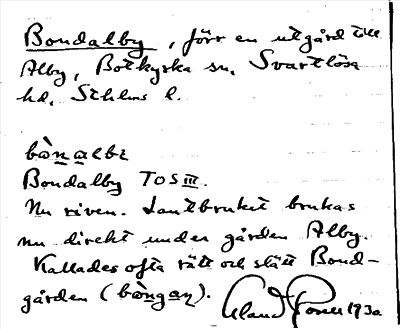 Bondalby, förr en utgård till
Alby, Botkyrka sn, Svartlösa
hd, Sthlms l.
bònalbi
Bondalby TOS III.
Nu riven. Lantbruket brukas
nu direkt under gården Alby.
Kallades ofta rätt och slätt Bond-
gården (bòngaṇ).
Erland 1930